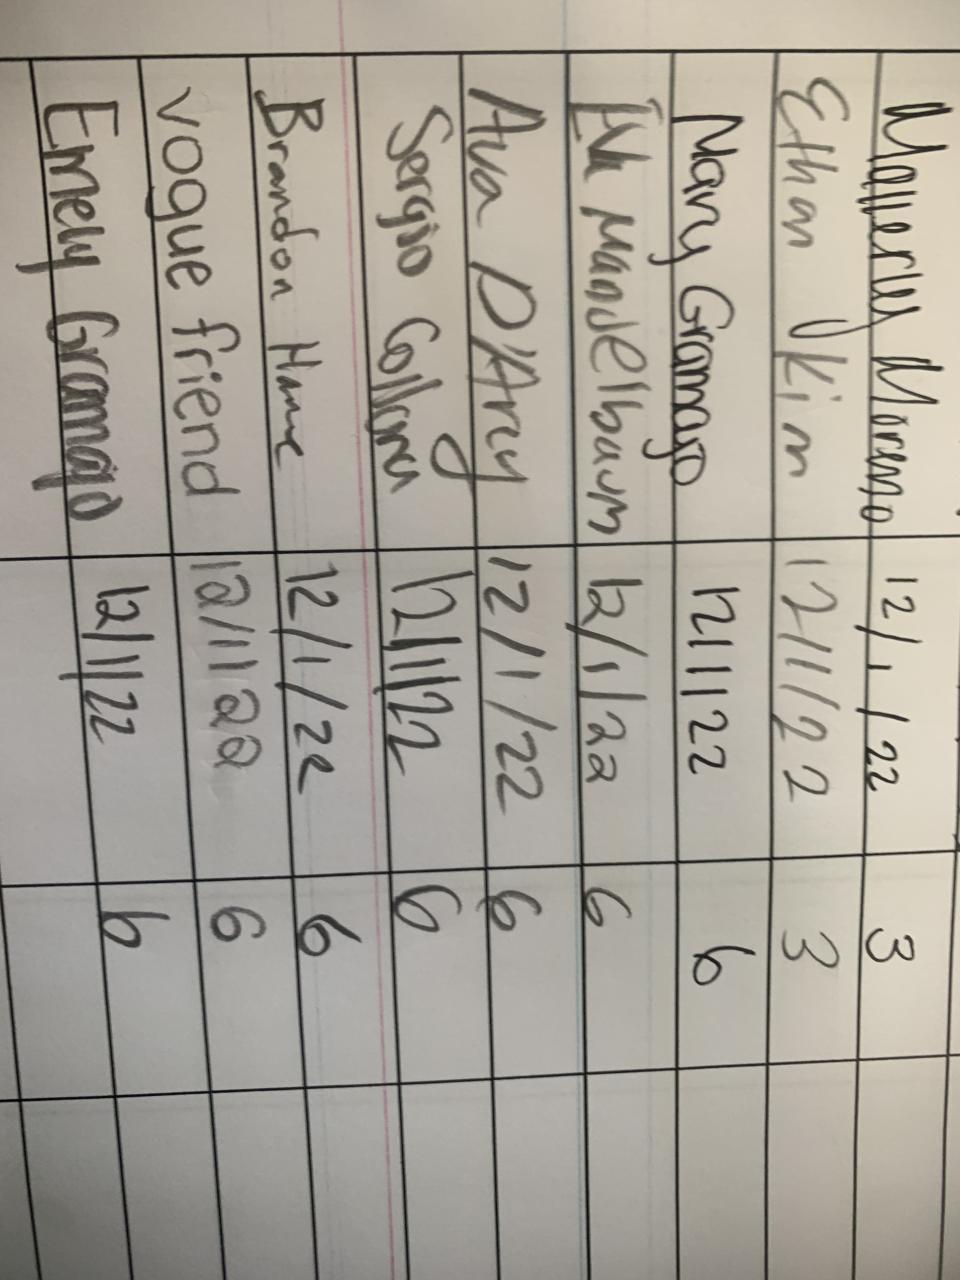 Moreno 12/1/22 3
Ethan Kim 12/1/22 3
Mary Gramajo 12/1/22 6
Mandelbaum 12/1/22 6
Ava D'Arcy 12/1/22 6
Sergio 12/1/22 6
Brandon 12/1/22 6
vogue friend 12/1/22 6
Emely Gramajo 12/1/22 6